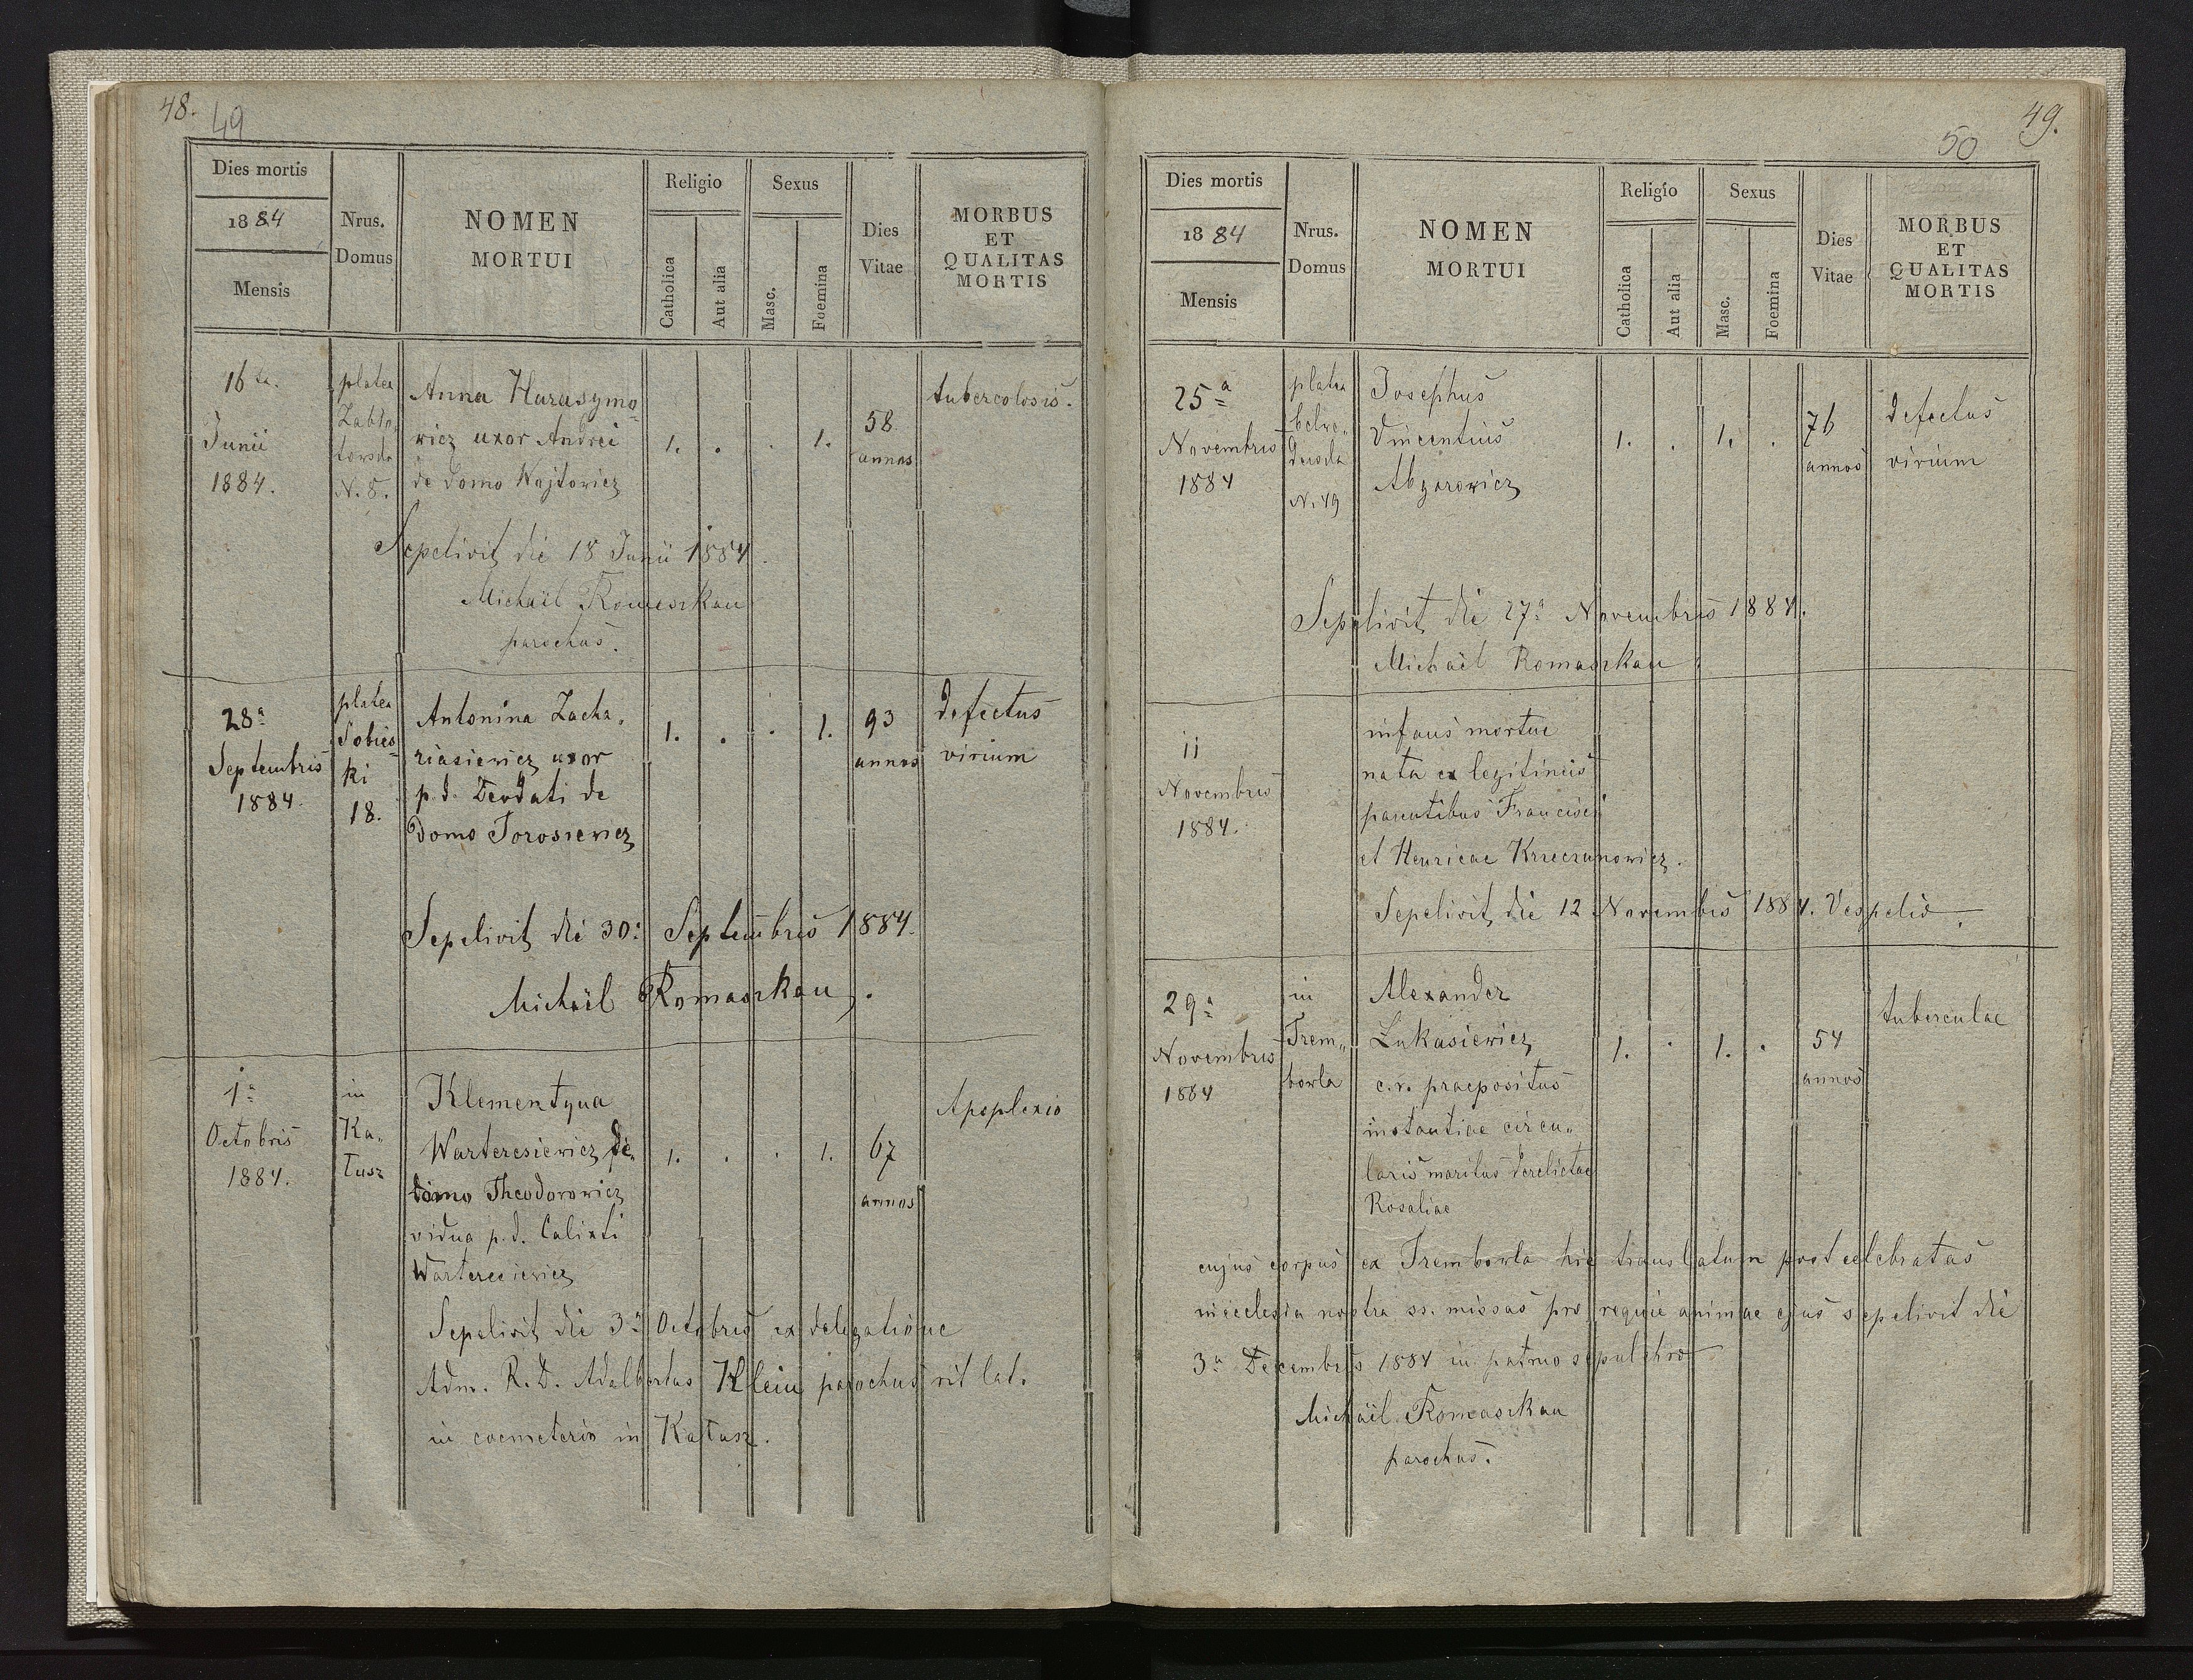 48.
49
Dies mortis
1884
Mensis
Nrus.
Domus
NOMEN
MORTUI
Religio
Catholica
Aut alia
Sexus
Masc.
Foemina
Dies
Vitae
MORBUS
ET
QUALITAS
MORTIS
16ta.
Junii
1884.
platea
Zabło,
towska
N. 8.
Anna Harasymo
wicz uxor Andrei
de domo Wojtowicz
1. . . 1.
58
annos
tubercolosis.
Sepelivit die 18 Junii 1884.
Michaël Romaszkan
parochus.
28a
Septembris
1884.
platea
Sobies
ki
18.
Antonina Zacha,
riasiewicz uxor
p. d. Deodati de
domo Torosiewicz
1. . . 1.
93
annos
defectus
virium
Sepelivit die 30a Septembris 1884.
Michaël Romaszkan.
1a
Octobris
1884.
in
Ka,
łusz
Klementyna
Warteresiewicz de
domo Theodorowicz
vidua p. d. Calixti
Warteresiewicz
1. . . 1.
67
annos
Apoplexio
Sepelivit die 3a Octobris ex delegatione
Adm. R. D. Adalbertus Klein parochus rit lat.
in coemeterio in Kałusz.
49.
50
Dies mortis
1884
Mensis
Nrus.
Domus
NOMEN
MORTUI
Religio
Catholica
Aut alia
Sexus
Masc.
Foemina
Dies
Vitae
MORBUS
ET
QUALITAS
MORTIS
25a
Novembris
1884
platea
N. 49
Josephus
Vincentius
Abgarowicz
1. . 1. .
76
annos
defectus
virium
Sepelivit die 27a Novembris 1884.
Michaël Romaszkan
11
Novembris
1884.
infans mortue
nata ex legitimis
parentibus Francisci
et Henricae Krzeczunowicz.
Sepelivit die 12 Novembris 1884. Vespelio.
29a
Novembris
1884
in
Trem,,
bowla
Alexander
Łukasiewicz
c. r. praepositus
instantiae circu,,
laris maritus derelictae
Rosaliae
1. . 1. .
54
annos
tuberculae
cujus corpus ex Trembowla hic translatum post celebratas
in ecclesia nostra ss. missas pro requie animae ejus sepelivit die
3a Decembris 1884 in patruo sepulchro
Michaël Romaszkan
parochus.